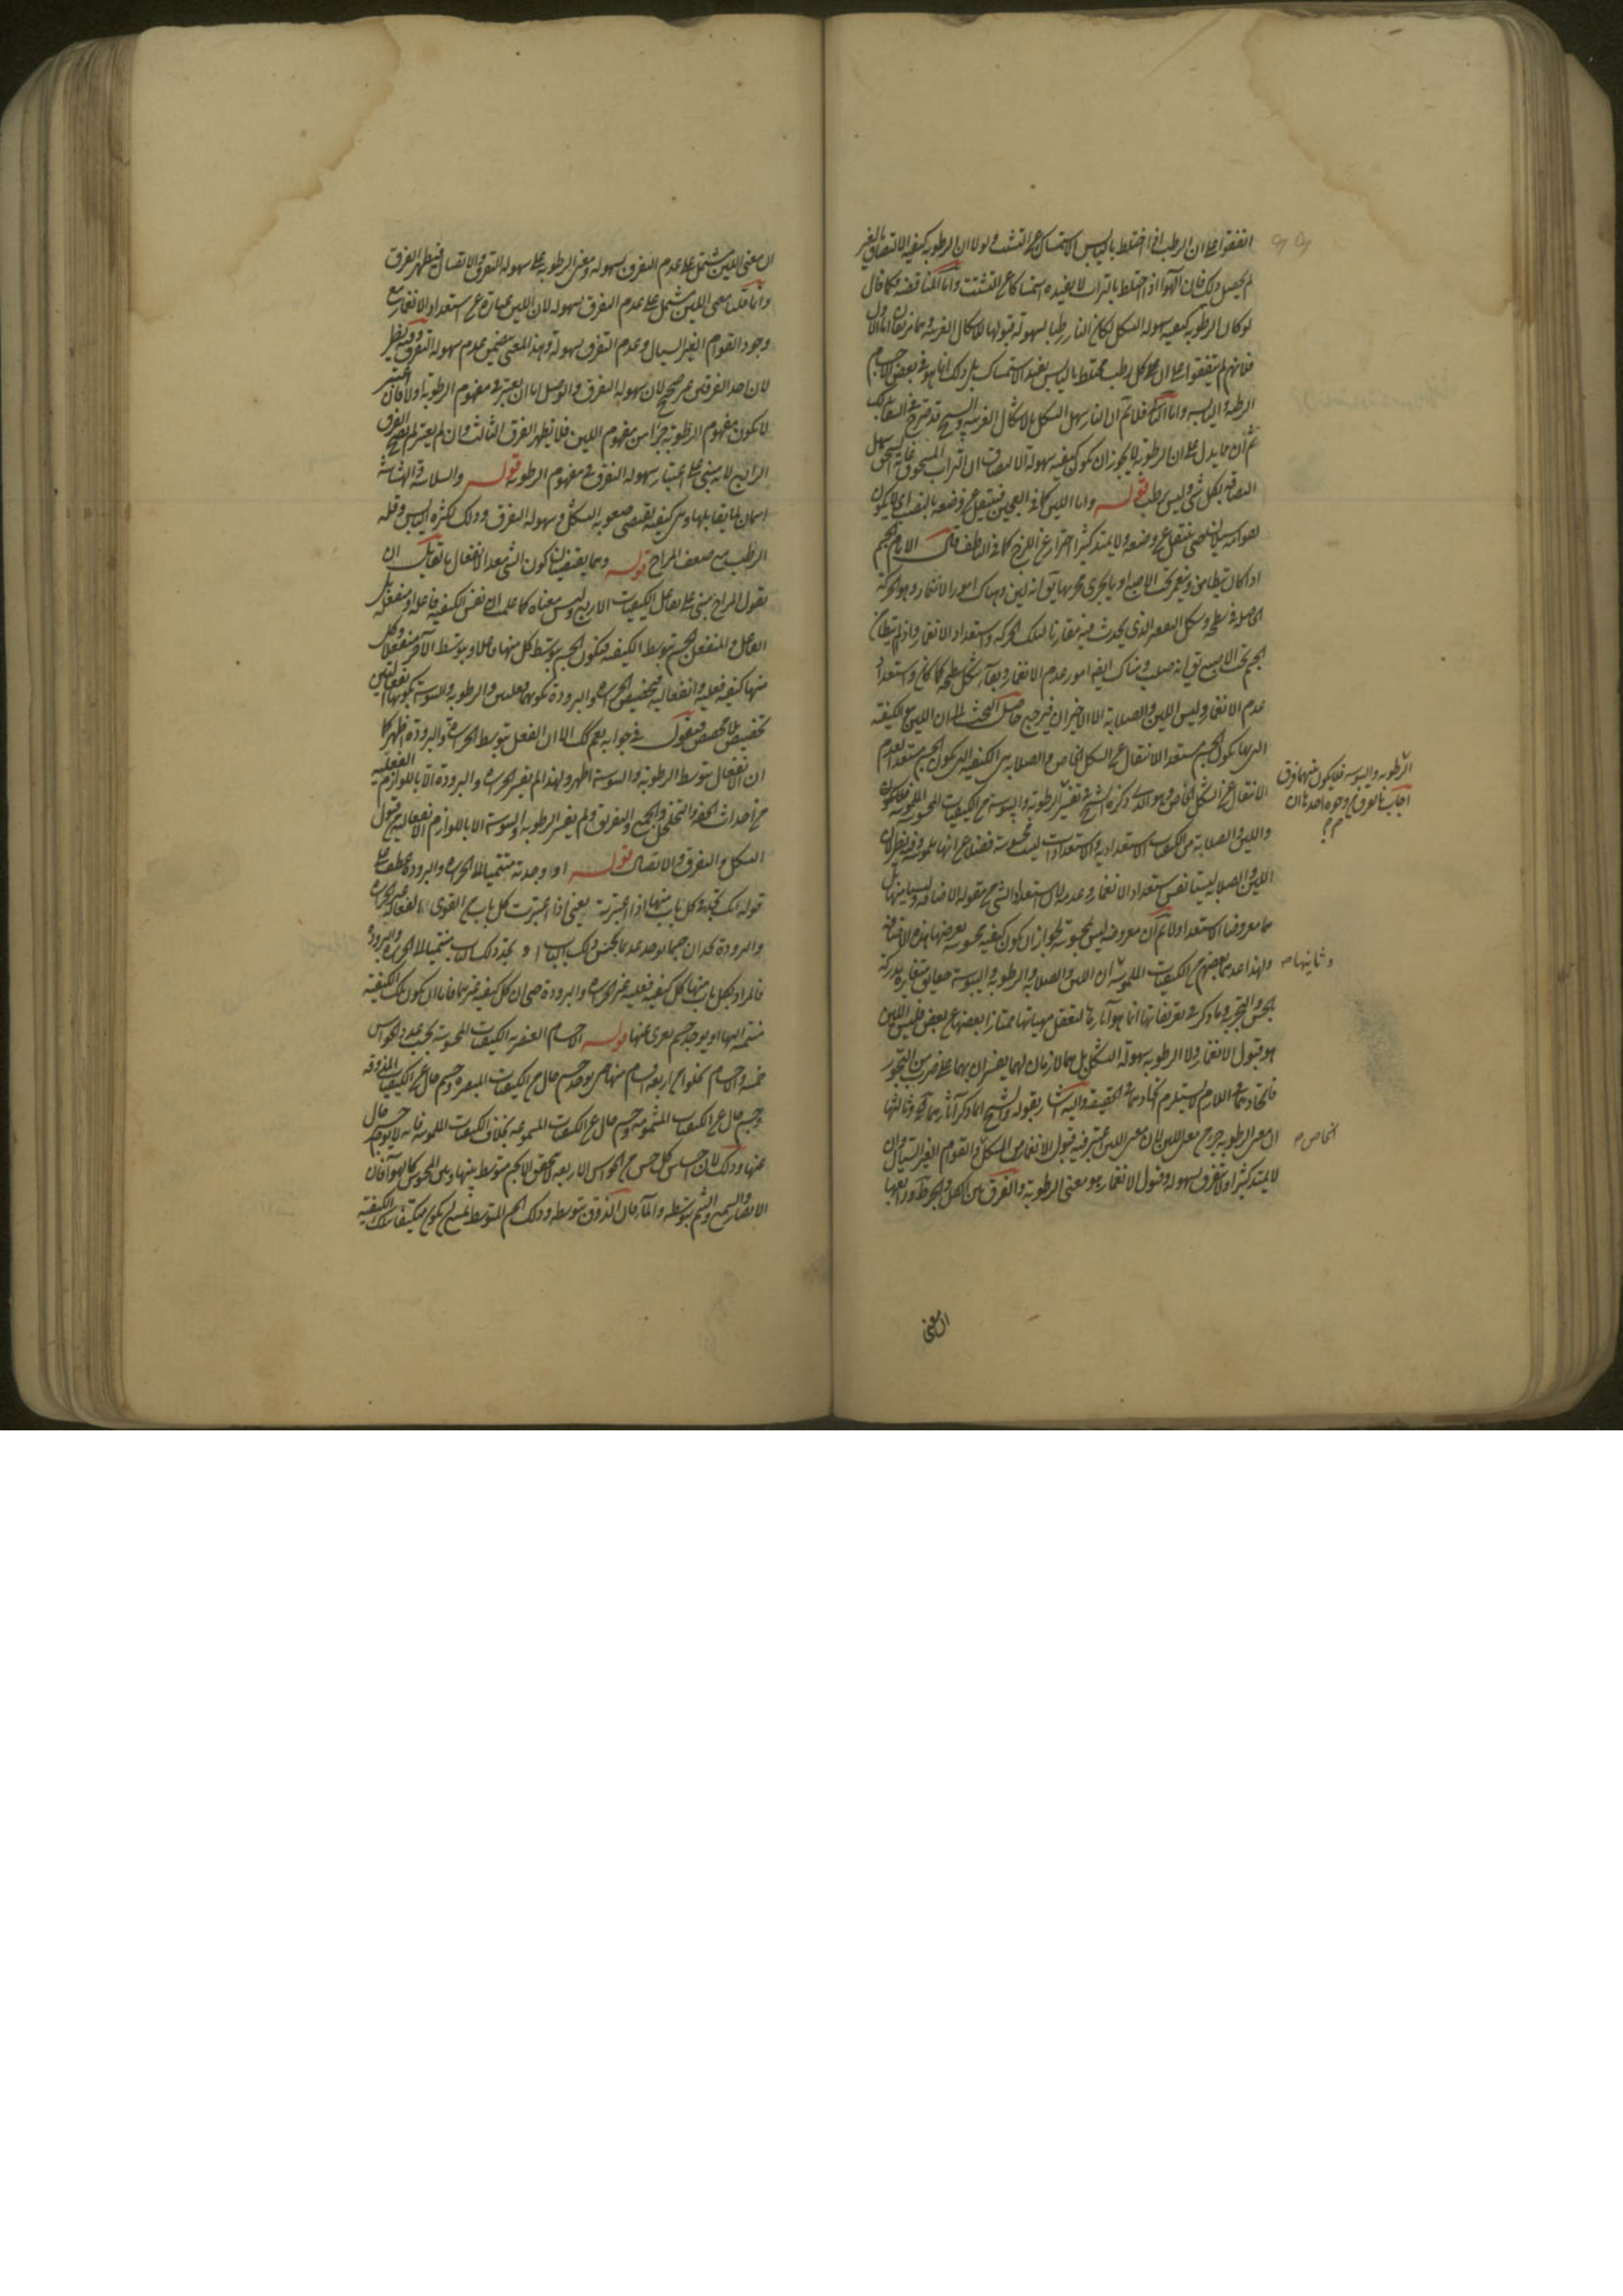 اتفقوا على ان الرطب اذا اختلط باليابس الاستمساك عن التشتت ولولا ان الرطوبة كيفية الالتصاق بالغير
لم يحصل ذلك فان الهواء اذا اختلط بالتراب لا يفيده استمساكا عن التشتت واما المناقضة فكما قال
لو كان الرطوبة كيفية سهولة الشكل لكان النار رطبا لسهولة قبولها للاشكال الغريبة وهما مزيفان اما الاول
فلانهم لم يتفقوا على ان كل رطب مختلط باليابس يفيد الاستمساك بل ذلك انما هو في بعض الاجسام
الرطبة واليابسة واما فلانم ان النار سهل الشكل بالاشكال الغريبة والشيخ قد صرح في
ثم ان مما يدل على ان الرطوبة لا يجوز ان يكون كيفية سهولة الالتصاق ان التراب المسحوق
التصاقه بكل شيء وليس برطب قوله واما اللين كما في العجين فينتقل عن وضعه
ينتقل عن وضعه ولا يمتد كثيرا احترازا عن اللزج
اذا كان يتطامن وينغمر تحت الاصبع او ما يجري مجريها يق انه لين وهناك امور الانغمار وهو الحركة
الحاصلة في سطحه وشكل التقعر الذي يحدث فيه مقارنا لتلك الحركة واستعداد الانغمار واذا لم يتطامن
الجسم تحت الاصبع يق انه صلب وهناك ايضا امور عدم الانغمار وبقاء شكل سطحه كما كان واستعداد
عدم الانغمار وليس اللين والصلابة الا الاخيران فيرجع حاصل البحث الى ان اللين هو الكيفية
التي بها يكون الجسم مستعدا للانتقال عن الشكل الخاص والصلابة هي الكيفية التي يكون الجسم مستعدا لعدم
الانتقال عن الشكل الخاص وهو الذي ذكره الشيخ في تفسير الرطوبة واليبوسة من الكيفيات المحسوسة
الرطوبة واليبوسة فلا يكون بينهما فرق
اجاب بالفرق من وجوه احدها ان
واللين والصلابة من الكيفيات الاستعدادية والاستعدادات ليست محسوسة فضلا عن انها ملموسة وفيه نظر لان
اللين والصلابة ليستا نفس استعداد الانغمار وعدمه لان استعداد الشيء من مقولة الاضافة وليسا منها بل
هما معروضا الاستعداد ولا نم ان معروضه ليس بمحسوسة لجواز ان يكون كيفية محسوسة يعرضها هذه الاضافة
وثانيها
ولهذا عدهما بعضهم من الكيفيات الملموسة ان اللين والصلابة والرطوبة واليبوسة حقايق متغايرة مدركة
بالحس والتجربة وما ذكر في تعريفاتها انما هو آثارها لتعقل مهياتها ممتازا بعضها عن بعض فليس اللين
هو قبول الانغمار ولا الرطوبة سهولة التشكل بل هما لازمان لهما يفسران بهما على ضرب من التجوز
فاتحادهما في اللازم لا يستلزم اتحادهما في الحقيقة واليه اشار بقوله والشيخ انما ذكر آثارهما وثالثها
الخاص
ان معنى الرطوبة جزء من معنى اللين لان معنى اللين اعتبر فيه قبول الانغمار من الشكل والقوام الغير السيال وان
لا يمتد كثيرا ولا يتفرق بسهولة وقبول الانغمار هو معنى الرطوبة والفرق بين الكل والجزء ظ ورابعها
ان معنى
ان معنى اللين مشتمل على عدم التفرق بسهولة ومعنى الرطوبة على سهولة التفرق والاتصال فيظهر الفرق
وانما قلنا معنى اللين مشتمل على عدم التفرق بسهولة لان اللين عبارة عن استعداد الانغمار مع
وجود القوام الغير السيال وعدم التفرق بسهولة وهذا المعنى يتضمن عدم سهولة التفرق وفيه نظر
لان احد الفرقين غير صحيح لان سهولة التفرق والوصل اما ان يعتبر في مفهوم الرطوبة او لا فان اعتبر
لا يكون مفهوم الرطوبة جزءا من مفهوم اللين فلا يظهر الفرق الثالث وان لم يعتبر لم يصح الفرق
الرابع لانه مبني على اعتبار سهولة التفرق في مفهوم الرطوبة قوله والسلاسة والهشاشة
اسمان لما يقابلها وهي كيفية تقتضي صعوبة التشكل وسهولة التفرق وذلك لكثرة اليابس وقلة
الرطب مع ضعف المزاج قوله وبما يقتضيان كون الشيء معدا لانفعال ما لقائل ان
يقول المزاج مبني على تفاعل الكيفيات الاربع وليس معناه كما علمت ان نفس الكيفية فاعلة او منفعلة بل
الفاعل والمنفعل الجسم بتوسط الكيفية فيكون الجسم بتوسط كل منها فاعلا وبتوسط الآخر منفعلا وكل
منها كيفية فعلية وانفعالية فتخصيص الحرارة والبرودة بكونهما فعليتين والرطوبة واليبوسة بكونهما انفعاليتين
تخصيص بلا مخصص فيقول في جوابه نعم كك الا ان الفعل بتوسط الحرارة والبرودة اظهر كما
ان الانفعال بتوسط الرطوبة واليبوسة اظهر ولهذا لم يفسر الحرارة والبرودة الا باللوازم الفعلية
من احداث الخفة والتخلخل والجمع والتفريق ولم يفسر الرطوبة واليبوسة الا باللوازم الانفعالية من قبول
التشكل والتفرق والاتصال قوله او وجدته منتميا الى الحرارة والبرودة عطف على
قوله انك تجد في كل باب منها اذا اعتبرته يعني اذا اعتبرت كل باب من القوى الفعالة غير الحرارة
والبرودة تجد ان جسما يوجد عديما لجنس ذلك الباب او تجد ذلك الباب منتميا الى الحرارة والبرودة
فالمراد بكل باب منها كل كيفية فعلية غير الحرارة والبرودة حتى ان كل كيفية غيرهما فاما ان تكون تلك الكيفية
منتمية اليها او يوجد جسم يعرى عنها قوله الاجسام العنصرية الكيفيات المحسوسة بحسب عدد الحواس
خمسة والاجسام يخلو عن اربعة اقسام منها حتى يوجد جسم خال عن الكيفيات المبصرة وجسم خال عن الكيفيات المذوقة
وجسم خال عن الكيفيات المشمومة وجسم خال عن الكيفيات المسموعة بخلاف الكيفيات الملموسة فانه لا يوجد جسم خال
عنها وذلك لان احساس كل حس من الحواس الاربعة لا يتحقق الا بجسم متوسط بينها وبين المحسوس كالهواء فان
الابصار والسمع والشم بتوسطه والماء فان الذوق بتوسطه وذلك الجسم المتوسط يمتنع ان يكون متكيفا بتلك الكيفية